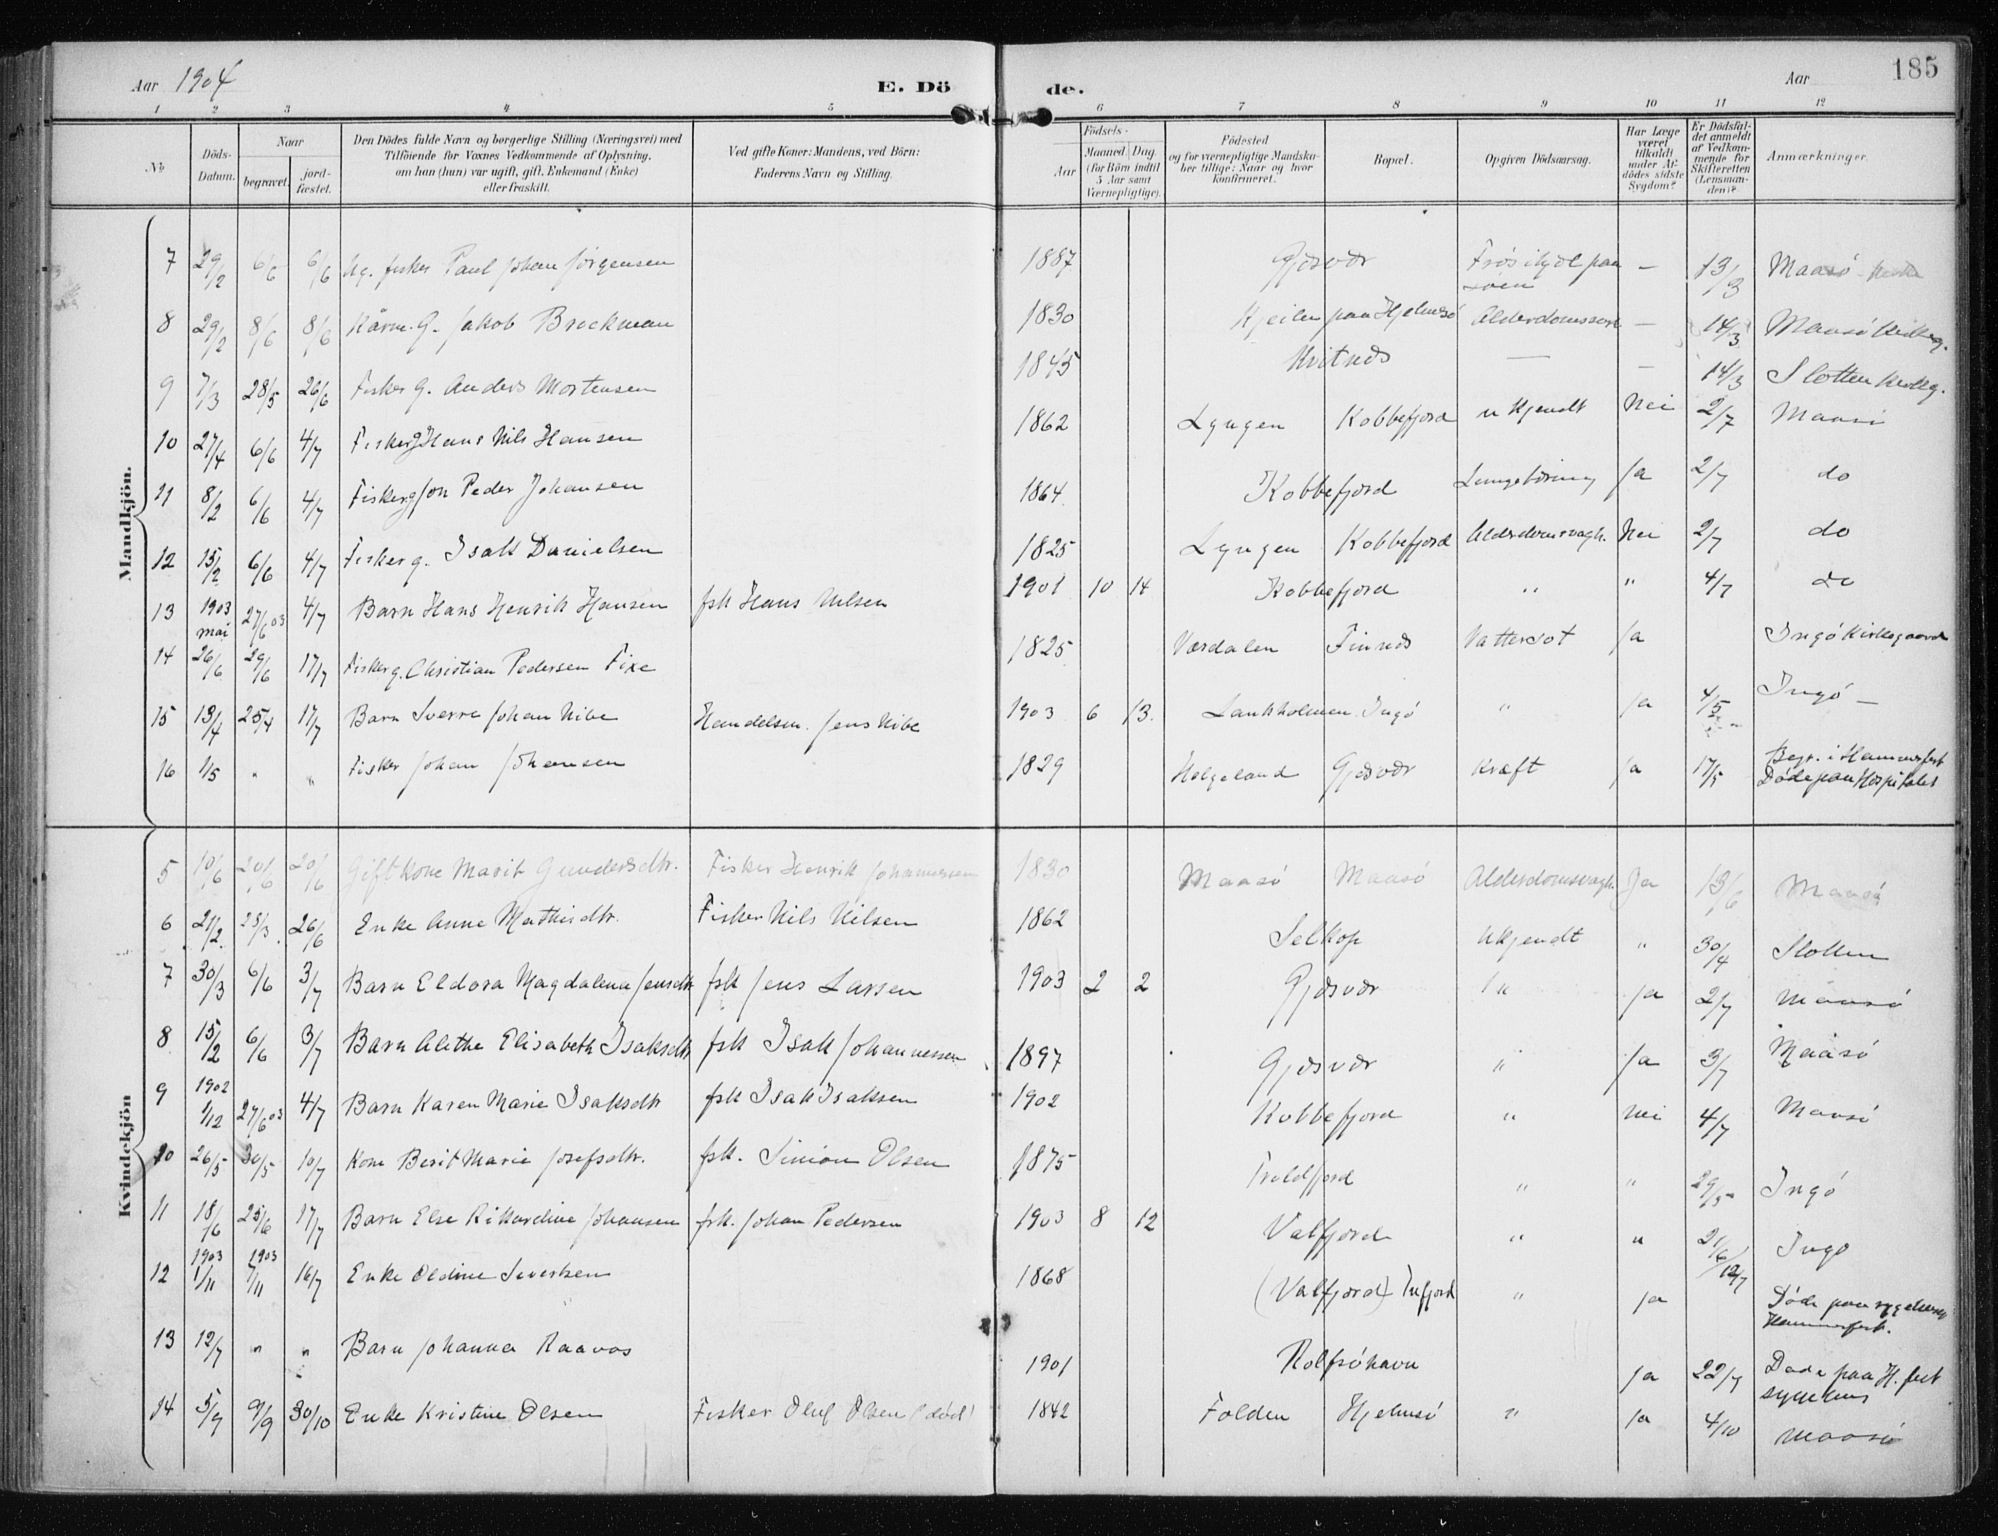 Aar 1904
E. Döde.
Aar
185
1 2 3 4 5 6 7 8 9 10 11 12
No
Döds-Datum.
Naar
begravet.
jord-fæstet.
Den Dödes fulde Navn og borgerlige Stilling (Næringsvei) med
Tilföiende for Voxnes Vedkommende af Oplysning,
om han (hun) var ugift, gift, Enkemand (Enke)
eller fraskilt.
Ved gifte Koner: Mandens, ved Börn:
Faderens Navn og Stilling.
Födsels-
Aar
Maaned Dag
(for Börn indtil
5 Aar samt
Værnepligtige).
Födested
og for værnepligtige Mandska-
ber tillige: Naar og hvor
konfirmeret.
Bopæl.
Opgiven Dödsaarsag.
Har Læge
været
tilkaldt
under Af-
dödes sidste
Sygdom?
Er Dödsfal-
det anmeldt
af Vedkom-
mende for
Skifteretten
(Lensman-
den)?
Anmærkninger.
Mandkjön.
7 29/2 6/6 6/6 Ug. fisker Paul Johan Jørgensen 1887 Gjesvær Frøs ihjel paa søen — 13/3 Maasö
8 29/2 8/6 8/6 G. Jakob Brockman 1830 Kjeilen paa Hjelmsö — 14/3 Maasö
9 7/3 28/5 26/6 Fisker G. Anders Mortensen 1845 Kvitnes — — 14/3 Slotten
10 27/4 6/6 4/7 Fisker g Hans Nils Hansen 1862 Lyngen Kobbefjord ukjendt Nei 2/7 Maasö
11 8/2 6/6 4/7 Fisker g Jon Peder Johansen 1864 Kobbefjord Ja 2/7 do
12 15/2 6/6 4/7 Fisker g. Isak Danielsen 1825 Lyngen Kobbefjord Alderdomsvagh. Nei 2/7 do
13 1903 mai 27/6 03 4/7 Barn Hans Henrik Hansen fsk Hans Nilsen 1901 10 14 Kobbefjord " " 4/7 do
14 26/6 29/6 17/7 Fisker g. Christian Pedersen Fixe 1825 Værdalen Finnes Vattersot Ja Ingö Kirkegaard
15 13/4 25/4 17/7 Barn Sverre Johan Nibe Handelsm. Jens Nibe 1903 6 13. Lankholmen Ingö " Ja 4/5 Ingö —
16 1/5 " " Fisker Johan Johansen 1829 Helgeland Gjesvær Kræft Ja 17/5 Begr. i Hammerfest
Döde paa Hospitalet
Kvindekjön
5 10/6 20/6 20/6 Gift Kone Marit Gundersdtr. Fisker Henrik Johannessen 1830 Maasö Maasö Alderdomsvagh. Ja 13/6 Maasö
6 21/2 25/3 26/6 Enke Anne Mathisdtr. Fisker Nils Nilsen 1862 Selkop Ukjendt " 30/4 Slotten
7 30/3 6/6 3/7 Barn Eldora Magdalena Jensdtr fsk Jens Larsen 1903 2 2 Gjesvær " Ja 2/7 Maasö
8 15/2 6/6 3/7 Barn Alethe Elisabeth Isaksdtr fsk Isak Johannessen 1897 Gjesvær " Ja 3/7 Maasö
9 1902 1/12 27/6 03 4/7 Barn Karen Marie Isaksdtr fsk Isak Isaksen 1902 Kobbefjord " nei 4/7 Maasö
10 26/5 30/5 10/7 Kone Berit Marie Josefsdtr. fsk. Simion Olsen 1875 Troldfjord " " 29/5 Ingö
11 18/6 25/6 17/7 Barn Else Rikardine Johansen fsk. Johan Pedersen 1903 8 12 Valfjord " " 21/6 Ingö
12 1903 1/11 1903 7/11 16/7 Enke Oldine Sivertsen 1868 (Valfjord) Tufjord " Ja 12/7 Döde paa
Hammerfest.
13 12/7 " " Barn Johanna Raavos 1901 Rolfsöhavn Ja 22/7 Døde paa H.fest
14 5/9 9/9 30/10 Enke Kristine Olsen Fisker Oluf Olsen (död) 1842 Folden Hjelmsö " Ja 4/10 Maasö